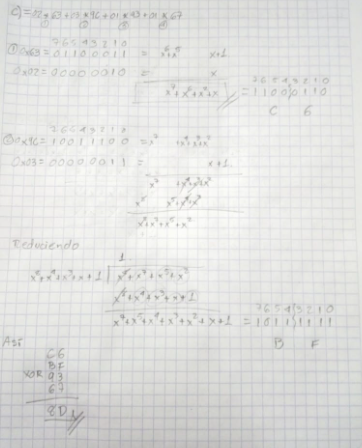 C) = 02 * 63 + 03 * 96 + 01 * 93 + 01 * 67
① ② ③ ④
7 6 5 4 3 2 1 0
① 0x63 = 0 1 1 0 0 0 1 1 = x⁶+x⁵ x+1
0x02 = 0 0 0 0 0 0 1 0 = x
7 6 5 4 3 2 1 0
x⁷+x⁶+x²+x = 1 1 0 0 0 1 1 0
C 6
7 6 5 4 3 2 1 0
② 0x96 = 1 0 0 1 1 1 0 0 = x⁷ +x⁴+x³+x²
0x03 = 0 0 0 0 0 0 1 1 = x+1
x⁷ +x⁴+x³+x²
x⁸ x⁵+x⁴+x³
x⁸+x⁷+x⁵+x²
Reduciendo
1
x⁸+x⁴+x³+x+1 x⁸+x⁷+x⁵+x²
x⁸+x⁴+x³+x+1
x⁷+x⁵+x⁴+x³+x²+x+1
7 6 5 4 3 2 1 0
= 1 0 1 1 1 1 1 1
B F
Así
C6
BF
XOR 93
67
8D